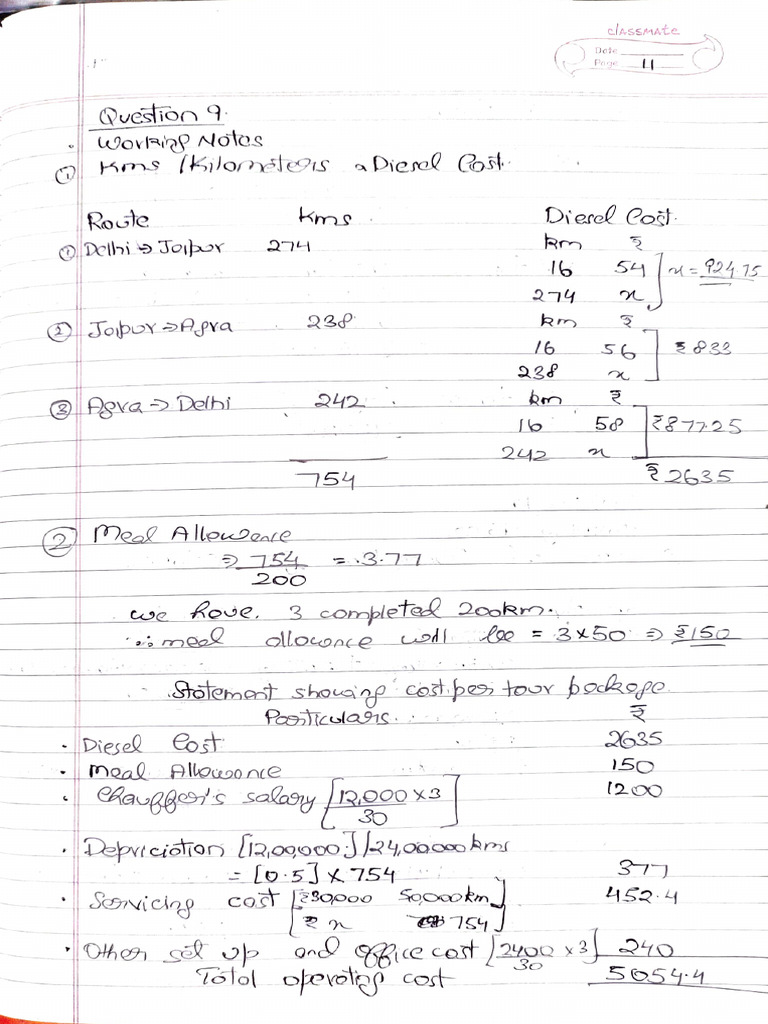 classmate
Date
Page 11
Question 9.
Working Notes
① Kms / Kilometers & Diesel Cost.
Route Kms Diesel Cost.
① Delhi ⇒ Jaipur 274 km ₹
16 54 x = 924.75
274 x
② Jaipur ⇒ Agra 238 km ₹
16 56 ₹833
238 x
③ Agra ⇒ Delhi 242 km ₹
16 58 ₹877.25
242 x
754 ₹2635
② Meal Allowence
⇒ 754 = 3.77
200
we have. 3 completed 200km.
∴ meal allowance will be = 3×50 ⇒ ₹150
Statement showing cost per tour package
Particulars. ₹
• Diesel Cost 2635
• Meal Allowance 150
• Chauffer's salary [12,000 × 3] 1200
30
• Depriciation [12,00,000] / 24,00,000 kms
= [0.5] × 754 377
• Servicing cost [₹30,000 50,000km] 452.4
[₹ x 754]
• Other set up and office cost [2400 × 3] 240
30
Total operating cost 5054.4